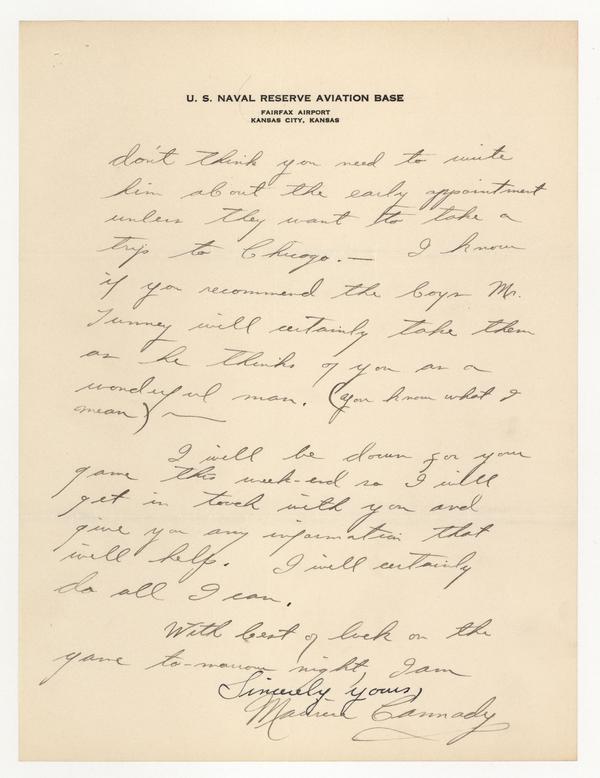 U. S. NAVAL RESERVE AVIATION BASE
FAIRFAX AIRPORT
KANSAS CITY, KANSAS
don't think you need to write
him about the early appointment
unless they want to take a
trip to Chicago. — I know
if you recommend the boys Mr.
Tunney will certainly take them
as he thinks of you as a
wonderful man. (you know what I
mean) —
I will be down for your
game this week-end so I will
get in touch with you and
give you any information that
will help. I will certainly
do all I can.
With best of luck on the
game to-morrow night, I am
Sincerely yours,
Maurice Cannady